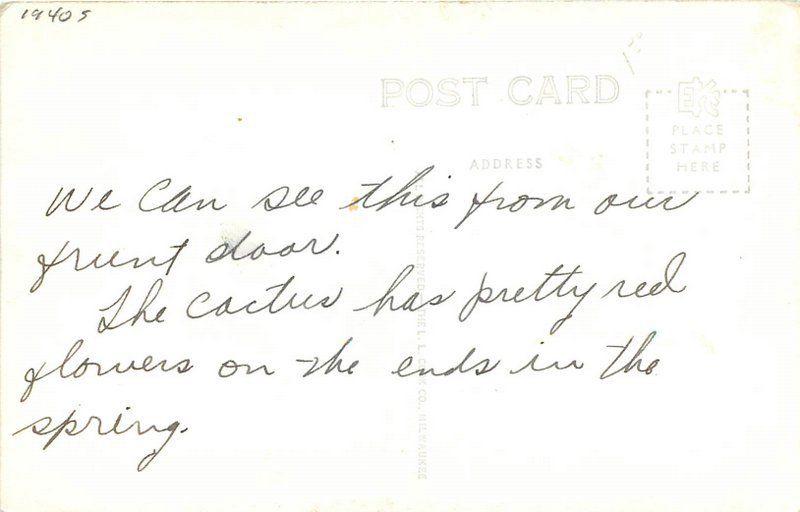 1940s
POST CARD
PLACE
STAMP
HERE
ADDRESS
We can see this from our
frunt door.
The cactus has pretty red
flowers on the ends in the
spring.